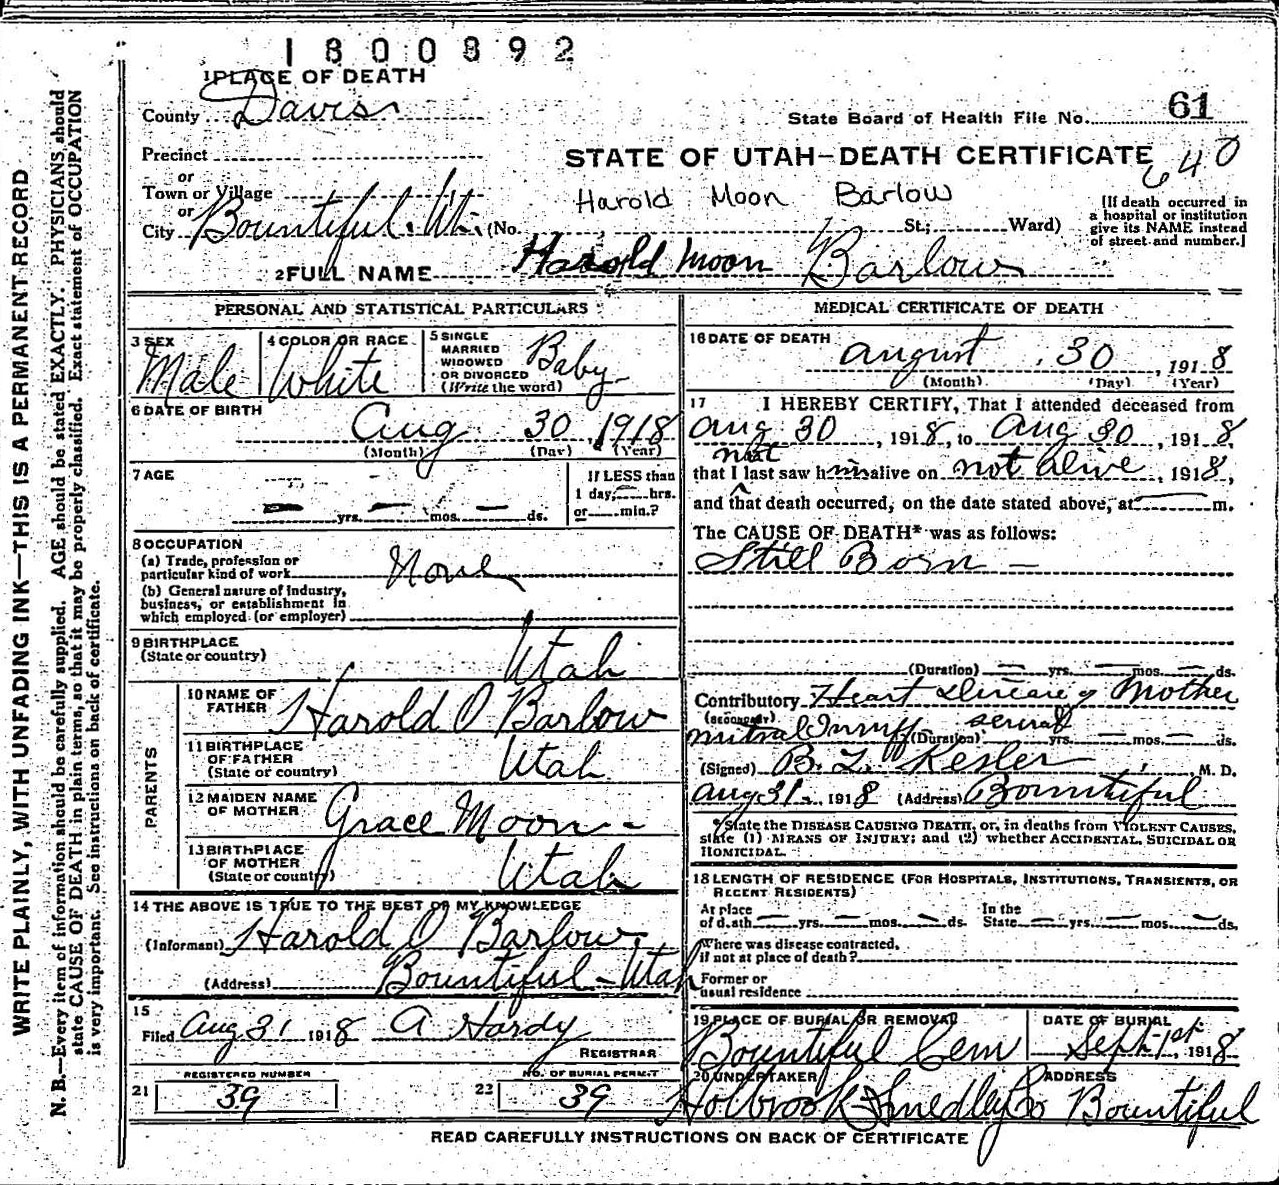 1800892
1 PLACE OF DEATH
County Davis
State Board of Health File No. 61
Precinct
STATE OF UTAH—DEATH CERTIFICATE 640
or
Town or Village
Harold Moon Barlow
or
City Bountiful. Ut. (No. St.; Ward)
[If death occurred in
a hospital or institution
give its NAME instead
of street and number.]
2 FULL NAME Harold Moon Barlow
WRITE PLAINLY, WITH UNFADING INK—THIS IS A PERMANENT RECORD
N. B.—Every item of information should be carefully supplied. AGE should be stated EXACTLY. PHYSICIANS should
state CAUSE OF DEATH in plain terms, so that it may be properly classified. Exact statement of OCCUPATION
is very important. See instructions on back of certificate.
PERSONAL AND STATISTICAL PARTICULARS
3 SEX
Male
4 COLOR OR RACE
White
5 SINGLE
MARRIED
WIDOWED
OR DIVORCED
(Write the word)
Baby
6 DATE OF BIRTH
Aug 30, 1918
(Month) (Day) (Year)
7 AGE
— yrs. — mos. — ds.
If LESS than
1 day, — hrs.
or min.?
8 OCCUPATION
(a) Trade, profession or
particular kind of work None
(b) General nature of industry,
business, or establishment in
which employed (or employer)
9 BIRTHPLACE
(State or country) Utah
PARENTS
10 NAME OF
FATHER Harold O Barlow
11 BIRTHPLACE
OF FATHER
(State or country) Utah
12 MAIDEN NAME
OF MOTHER Grace Moon -
13 BIRTHPLACE
OF MOTHER
(State or country) Utah
14 THE ABOVE IS TRUE TO THE BEST OF MY KNOWLEDGE
(Informant) Harold O Barlow
(Address) Bountiful - Utah
15
Filed Aug 31 1918 A Hardy
REGISTRAR
REGISTERED NUMBER
21 39
NO. OF BURIAL PERMIT
22 39
MEDICAL CERTIFICATE OF DEATH
16 DATE OF DEATH
August 30, 1918
(Month) (Day) (Year)
17 I HEREBY CERTIFY, That I attended deceased from
Aug 30, 1918, to Aug 30, 1918,
not
that I last saw him alive on not alive, 1918,
and that death occurred, on the date stated above, at — m.
The CAUSE OF DEATH* was as follows:
Still Born —
(Duration) — yrs. — mos. — ds.
Contributory Heart Disease of Mother
(SECONDARY)
mitral (Duration) several yrs. — mos. — ds.
(Signed) B. L. Kesler, M. D.
Aug 31, 1918 (Address) Bountiful
*State the DISEASE CAUSING DEATH, or, in deaths from VIOLENT CAUSES,
state (1) MEANS OF INJURY; and (2) whether ACCIDENTAL, SUICIDAL OR
HOMICIDAL.
18 LENGTH OF RESIDENCE (FOR HOSPITALS, INSTITUTIONS, TRANSIENTS, OR
RECENT RESIDENTS)
At place
of death — yrs. — mos. — ds.
In the
State — yrs. — mos. — ds.
Where was disease contracted,
if not at place of death?
Former or
usual residence
19 PLACE OF BURIAL OR REMOVAL
Bountiful Cem
DATE OF BURIAL
Sept 1st, 1918
20 UNDERTAKER
Holbrook Smedley Co
ADDRESS
Bountiful
READ CAREFULLY INSTRUCTIONS ON BACK OF CERTIFICATE